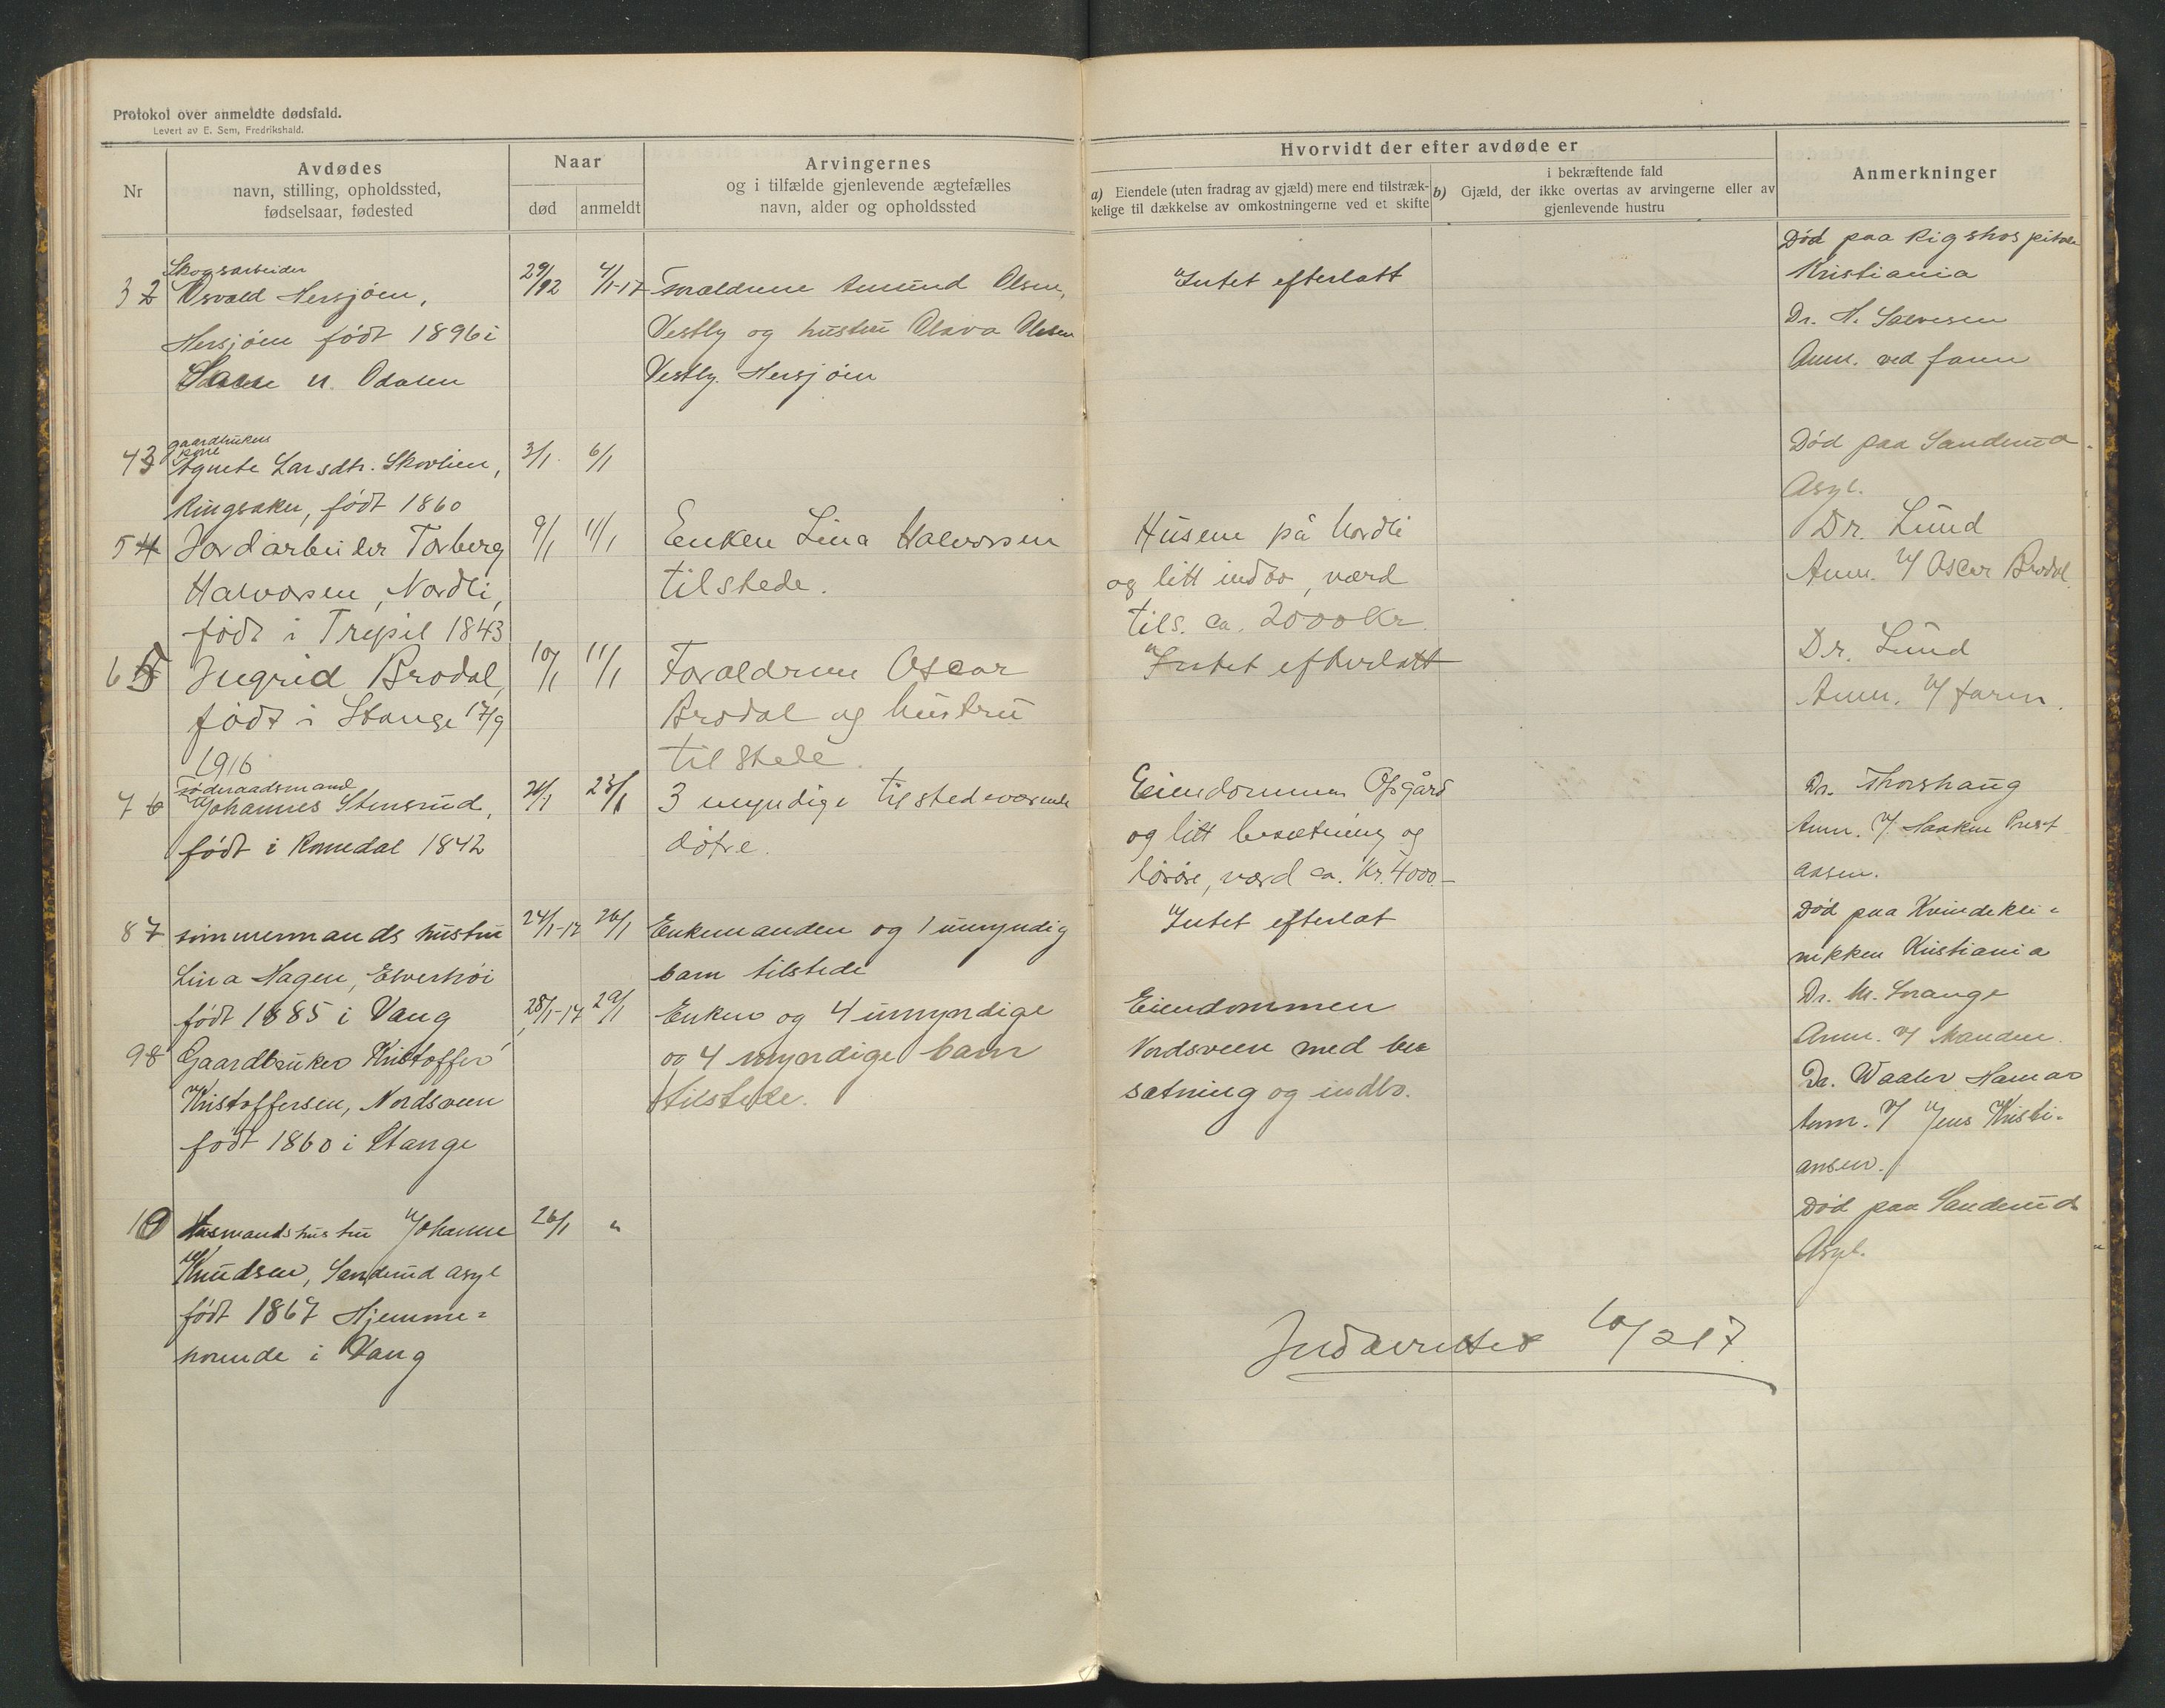 Protokol over anmeldte dødsfald.
Levert av E. Sem, Fredrikshald.
Nr
Avdødes
navn, stilling, opholdssted,
fødselsaar, fødested
Naar
død
anmeldt
Arvingernes
og i tilfælde gjenlevende ægtefælles
navn, alder og opholdssted
Hvorvidt der efter avdøde er
a) Eiendele (uten fradrag av gjæld) mere end tilstræk-
kelige til dækkelse av omkostningerne ved et skifte
i bekræftende fald
b) Gjæld, der ikke overtas av arvingerne eller av
gjenlevende hustru
Anmerkninger
3 2
Skogsarbeider
Osvald Hersjøen,
Hersjøen født 1896 i
N. Odalen
29/12
4/1-17
Forældrene Amund Olsen,
Vestby og hustru Olava Olsen
Vestby. Hersjøen
Intet efterlatt
Død paa Rigshospitale
Kristiania
Dr. H. Salvesen
Anm. ved faren
4 3
gaardbrukers
kone
Agnete Larsdtr. Skovlien,
Ringsaker, født 1860
3/1
6/1
Død paa Sanderud
Asyl.
5 4
Jordarbeider Torberg
Halvorsen, Nordli,
født i Trysil 1843
9/1
11/1
Enken Lina Halvorsen
tilstede.
Husene på Nordli
og litt indbo, værd
tils. ca. 2000 Kr.
Dr. Lund
Anm. v/ Oscar Brodal
6 5
Ingrid Brodal,
født i Stange 17/9
1916
10/1
11/1
Forældrene Oscar
Brodal og hustru
tilstede.
Intet efterlatt
Dr. Lund
Anm. v/ faren.
7 6
Føderaadsmand
Johannes Stensrud,
født i Romedal 1842
23/1
3 myndige tilstedeværende
døtre.
Eiendommen Opgård
og litt besætning og
løsøre, værd ca. Kr. 4000.-
Dr. Thorshaug
Anm. v/ Haaken Prest
aasen.
8 7
Tømmermands hustru
Lina Hagen, Elverhøi
født 1885 i Vang
24/1-17
26/1
Enkemanden og 1 umyndig
barn tilstede
Intet efterlat
Død paa Kvindekli-
nikken Kristiania
Dr. M. Lorange
Anm. v/ Manden.
9 8
Gaardbruker Kristoffer
Kristoffersen, Nordsveen
født 1860 i Stange
28/1-17
29/1
Enken og 4 umyndige
og 4 myndige barn
tilstede.
Eiendommen
Nordsveen med be
sætning og indbo.
Dr. Waaler Hamar
Anm. v/ Jens Kristi-
ansen.
10
Husmandshustru Johanne
Knudsen, Sanderud asyl
født 1867 Hjemme-
hørende i Vang
26/1
"
Død paa Sanderuds
Asyl.
Indberettet 10/2 17